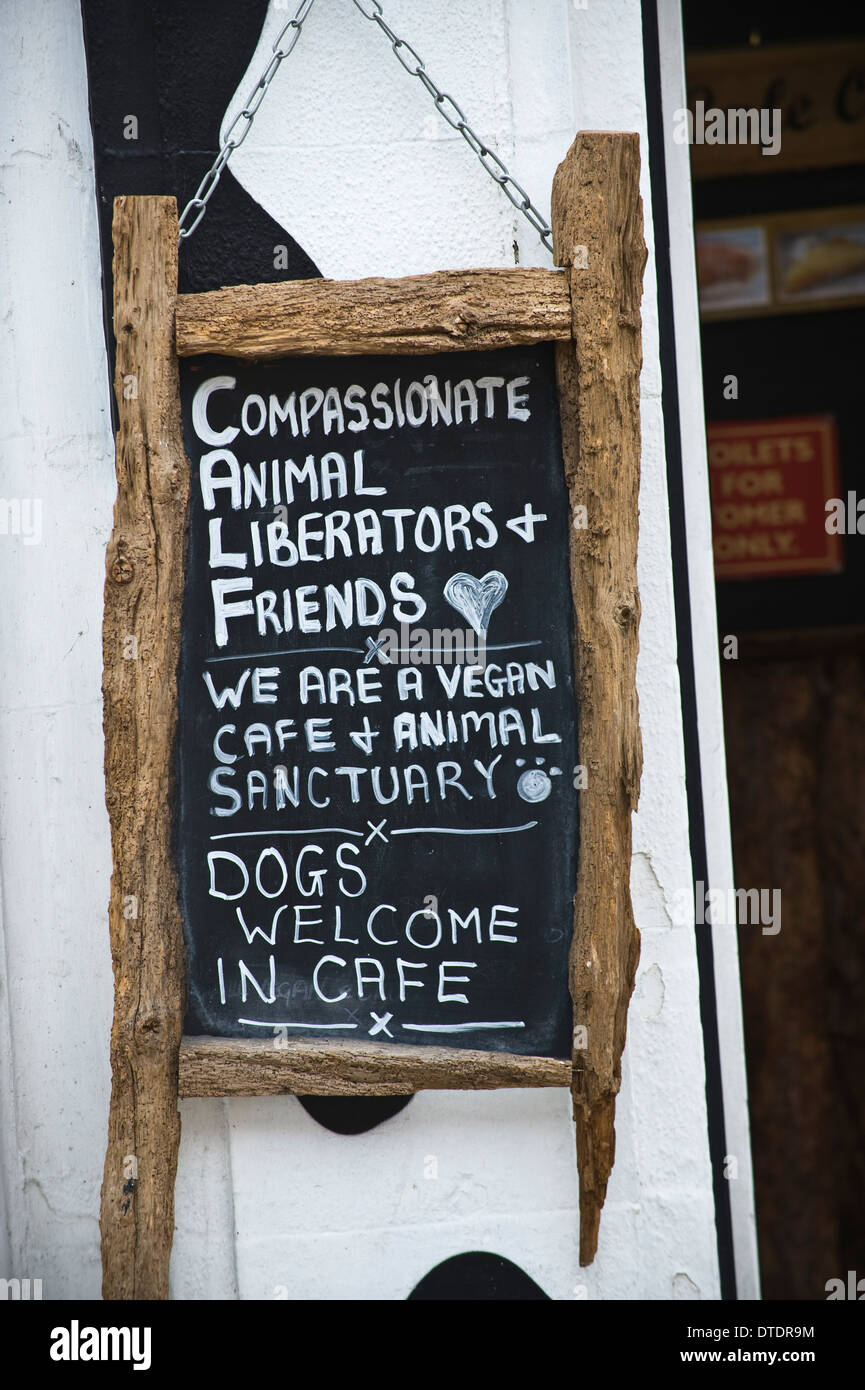 COMPASSIONATE
ANIMAL
LIBERATORS +
FRIENDS
WE ARE A VEGAN
CAFE + ANIMAL
SANCTUARY
DOGS
WELCOME
IN CAFE
TOILETS
FOR
ONLY.
alamy
Image ID: DTDR9M
www.alamy.com